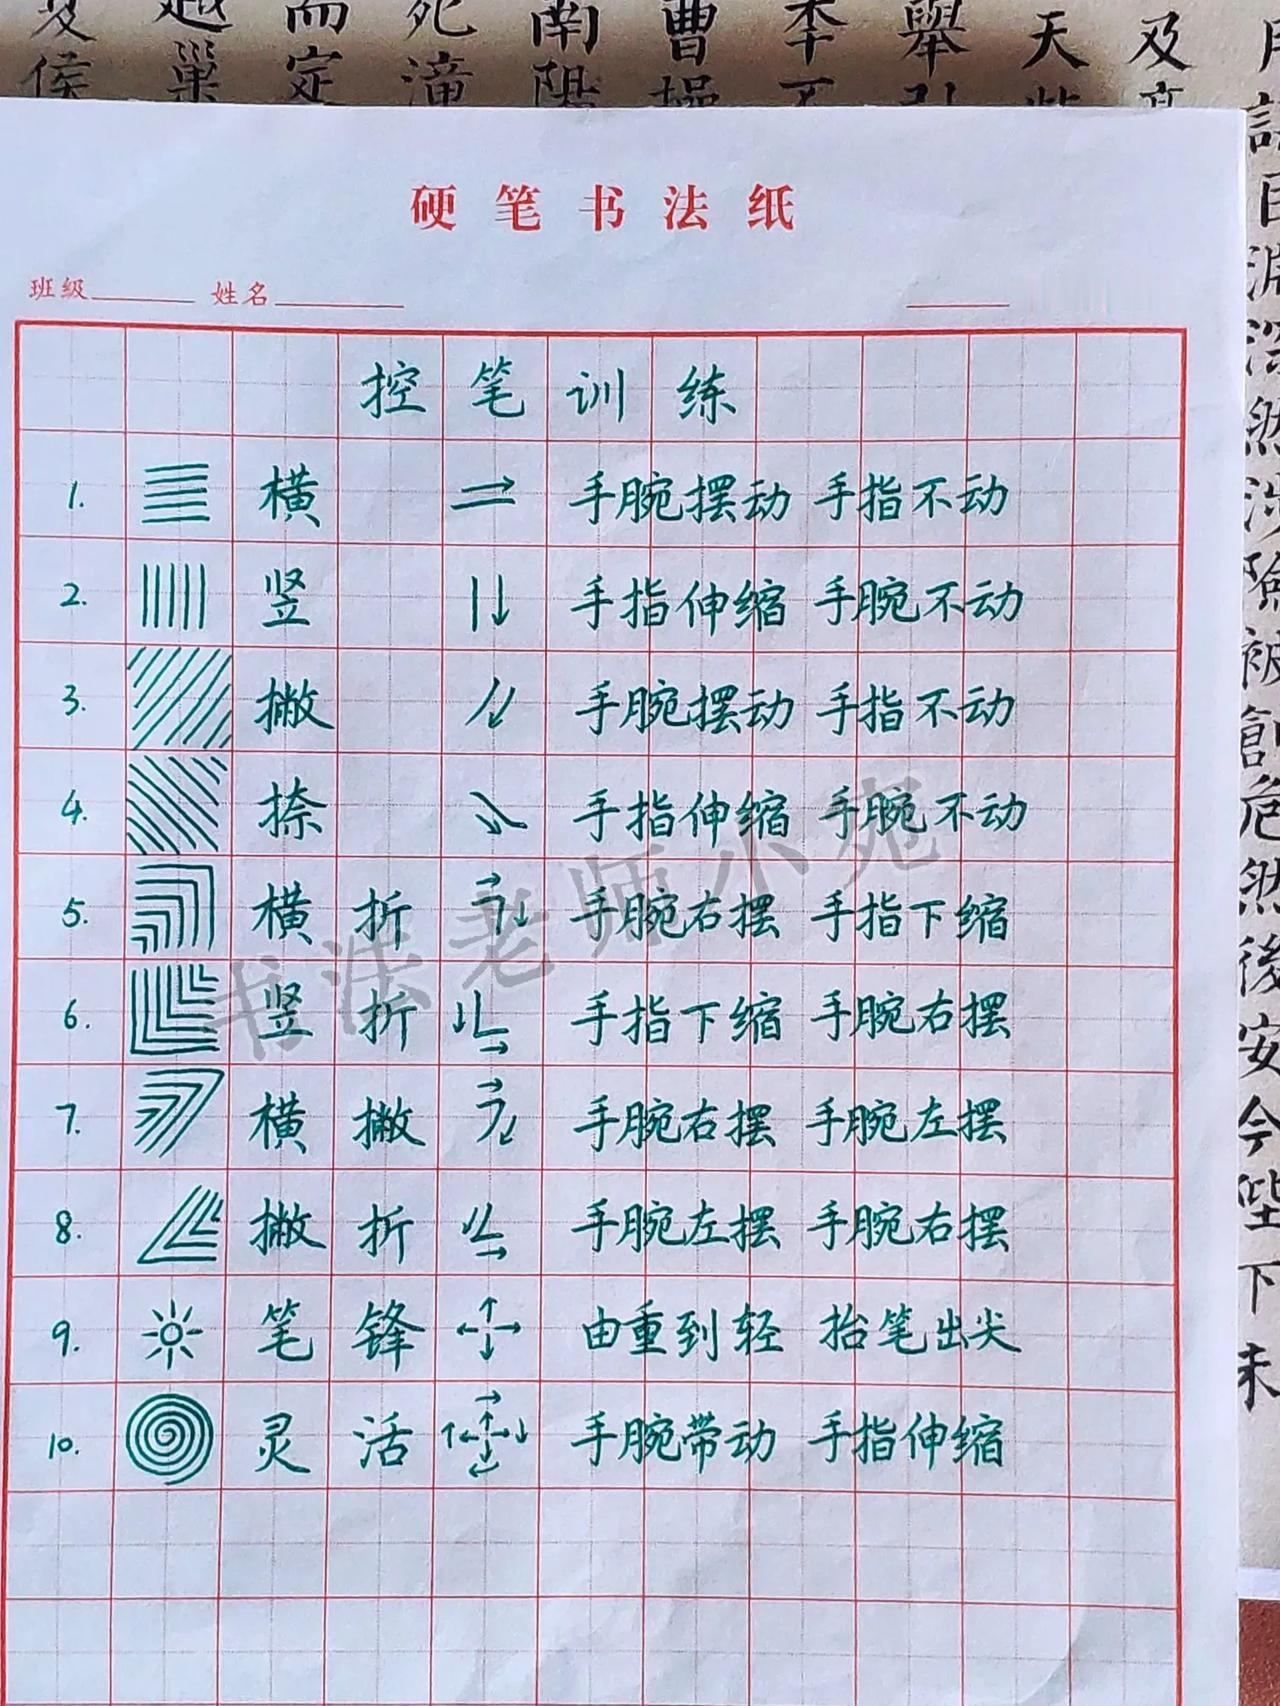 硬笔书法纸
班级 姓名
控笔训练
1. 横 手腕摆动 手指不动
2. 竖 手指伸缩 手腕不动
3. 撇 手腕摆动 手指不动
4. 捺 手指伸缩 手腕不动
5. 横折 手腕右摆 手指下缩
6. 竖折 手指下缩 手腕右摆
7. 横撇 手腕右摆 手腕左摆
8. 撇折 手腕左摆 手腕右摆
9. 笔锋 由重到轻 抬笔出尖
10. 灵活 手腕带动 手指伸缩
书法老师小苑
天
及
舉
曹
南
死
而定
侯
日
深
然涉險被創危然後安今陛下未